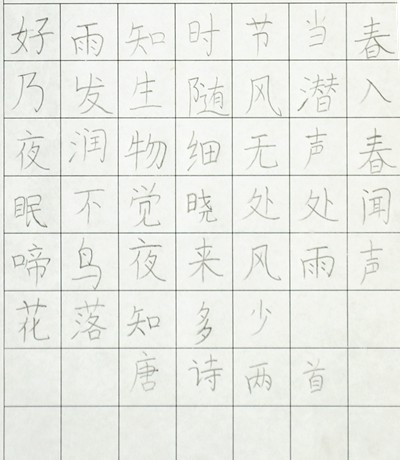 好雨知时节当春
乃发生随风潜入
夜润物细无声春
眠不觉晓处处闻
啼鸟夜来风雨声
花落知多少
唐诗两首